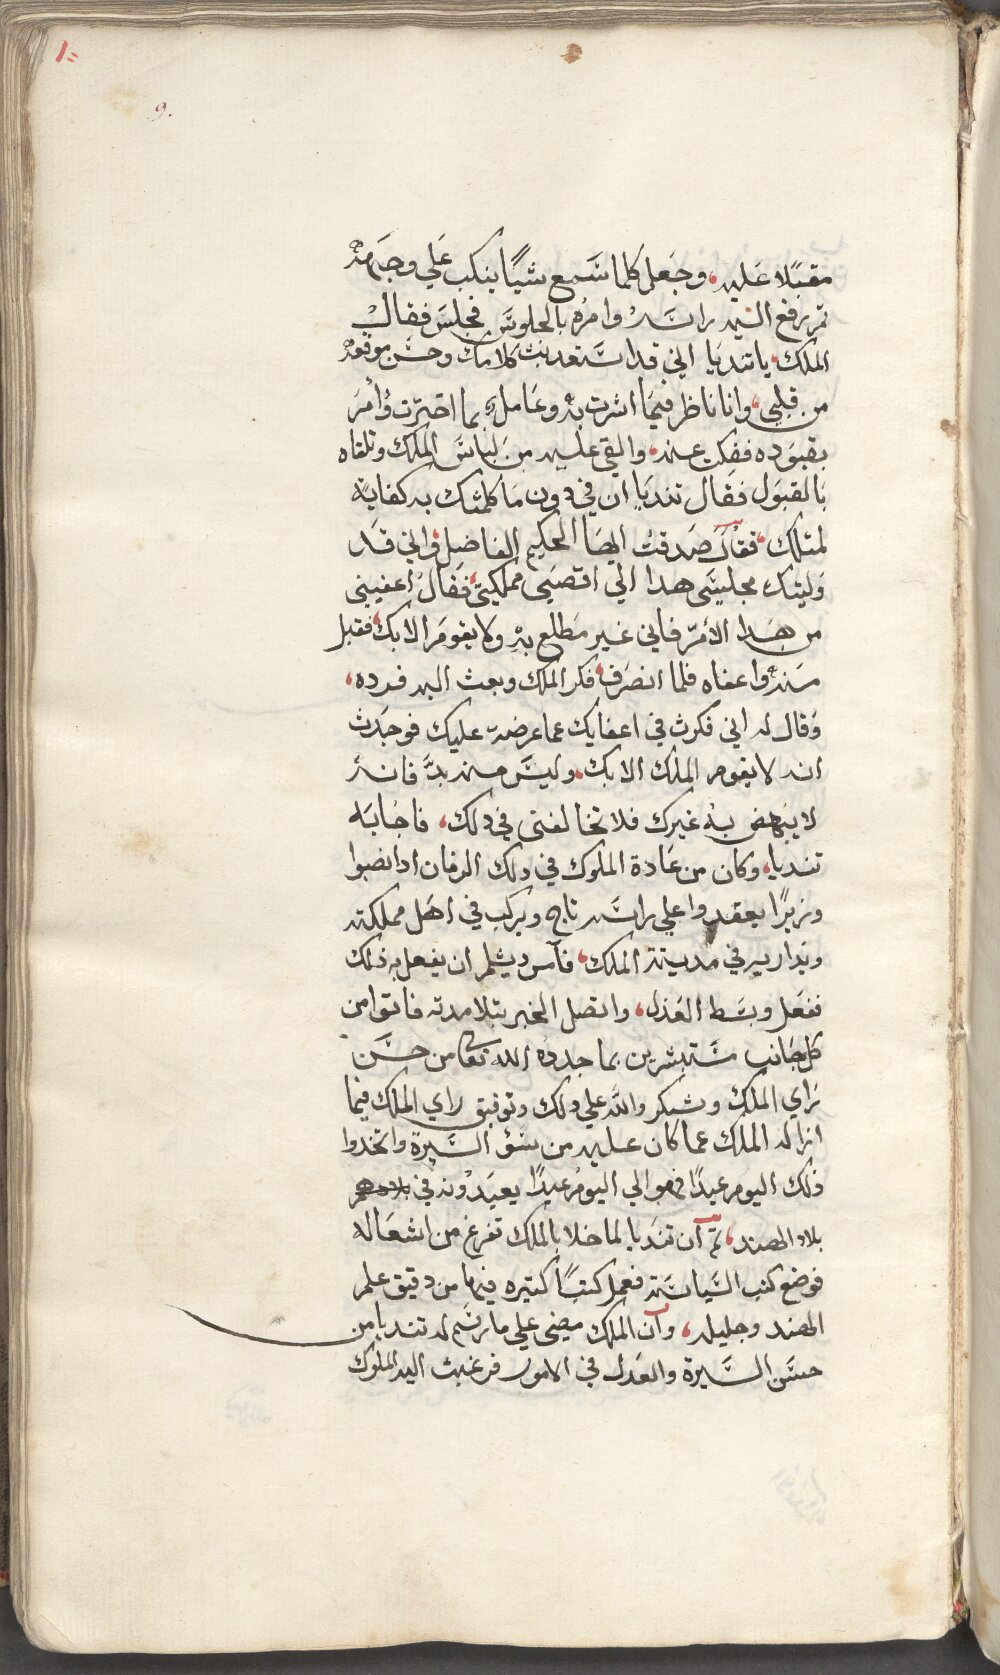 ١٠
9.
مقبلا عليه، وجعل كلما سمع شيًا ينكب علي وجهه
ثم رفع اليه راسه وامره بالجلوس فجلس فقال
الملك يا تنديا اني قد استعدبت كلامك وحسن موقعه
من قلبي، وانا ناظر فيما اشرت به وعامل بما اخترت وأمر
بقيوده ففكت عنه، والقي عليه من لباس الملك وتلقاه
بالقبول فقال تنديا ان في دون ما كلمتك به كفاية
لمتلك، فقال صدقت ايها الحكيم الفاضل واني قد
وليتك مجلسي هدا الي اقتصي مملكتي، فقال اعفيني
من هدا الأمر فاني غير مطلع به ولا يقوم الا بك، فقبل
منه واعفاه فلما انصرف، فكر الملك وبعث اليه فرده،
وقال له اني فكرت في اعفايك عما عرضته عليك فوجدت
انه لا يقوم الملك الا بك، وليس منه بدّ فانه
لا ينهض به غيرك فلا تخالفني في دلك، فاجابه
تنديا، وكان من عادة الملوك في دلك الزمان ادا نصبوا
وزيرًا يعقدوا علي راسه تاج ويركب في اهل مملكته
ويدار به في مدينة الملك، فأمر ديشلم ان يفعل به ذلك
ففعل وبسط العدل، واتصل الخبر بتلامدته فاتوا من
كل جانب مستبشرين بما جدده الله تعا من حسن
راي الملك وشكروا الله علي دلك وتوفيق راي الملك فيما
ازاله الملك عما كان عليه من سؤ السيرة واتخدوا
ذلك اليوم عيدًا فهو الي اليوم عيدًا يعيدونه في بلادهم
بلاد الهند، ثم أن تنديا لما خلا بالملك تفرغ من اشعاله
فوضع كتب السياسة فعمل كتبًا كتيره فيها من دقيق علم
الهند وجليله، وأن الملك مضي علي ما رسم له تنديا من
حسن السيرة والعدل في الامور فرغبت اليه الملوك